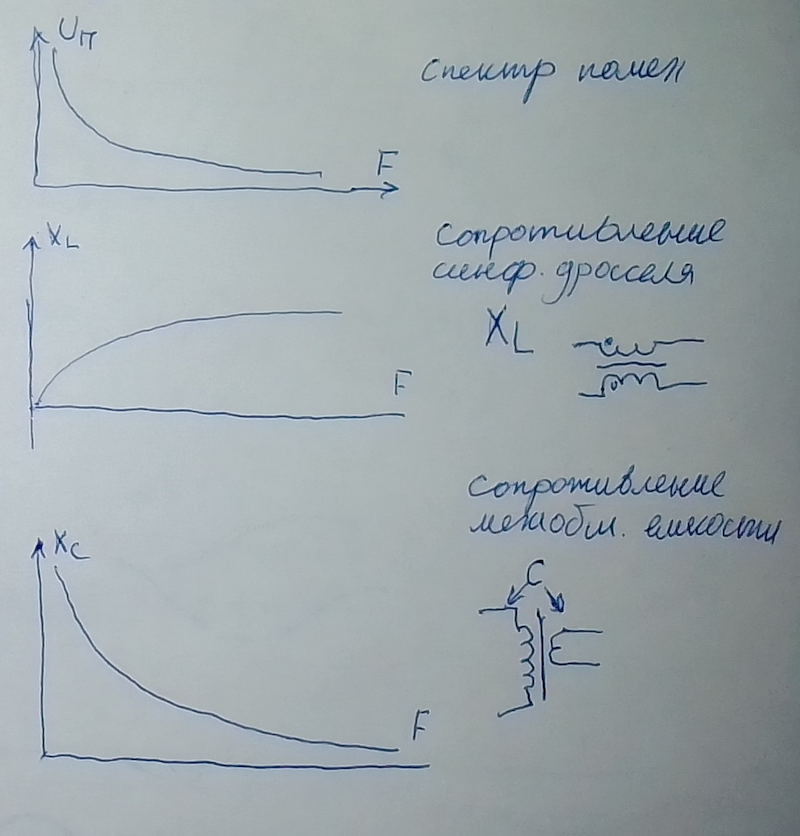 Uп
Спектр помех
F
XL
Сопротивление
синф. дросселя
XL
F
Сопротивление
межобм. емкости
XC
C
F